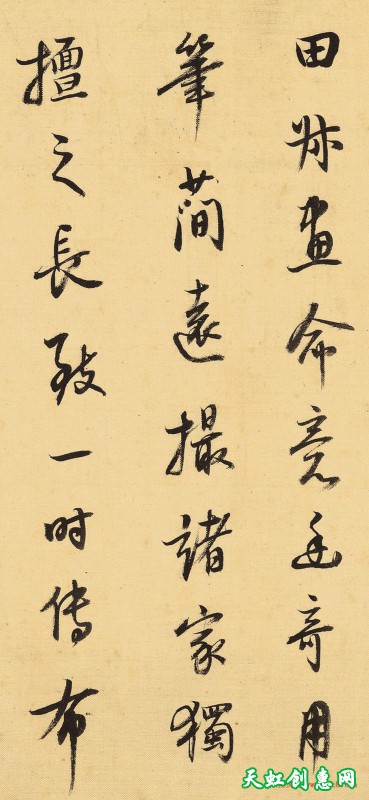 田叔畫命意奇用
筆簡遠撮諸家獨
擅之長致一时傳布
天虹创惠网